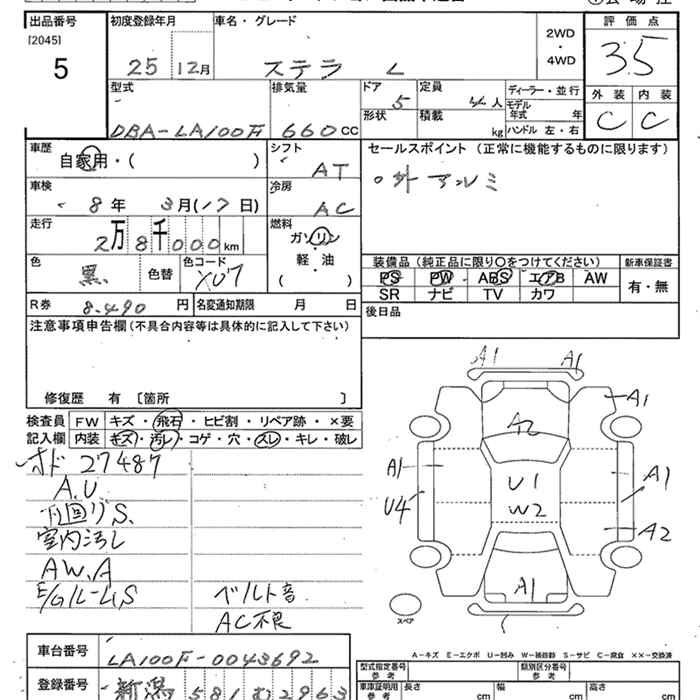 出品番号 初度登録年月 車名・グレード 2WD・4WD 評価点
[2045]
5 25 12月 ステラ L 3.5
型式 排気量 ドア 5 定員 4人 ディーラー・並行 外装 内装
形状 積載 kg モデル年式 年 ハンドル 左・右 C C
DBA-LA100F 660cc
車歴 自家用・( ) シフト AT セールスポイント (正常に機能するものに限ります)
外アルミ
車検 8年 3月(17日) 冷房 AC
走行 2万8千000km 燃料 ガソリン 軽・油 ( )
色 黒 色替 色コード X07
装備品 (純正品に限り〇をつけてください) 新車保証書
PS PW ABS エアB AW 有・無
SR ナビ TV カワ
R券 8.490円 名変通知期限 月 日
後日品
注意事項申告欄(不具合内容等は具体的に記入して下さい)
修復歴 有 [箇所 ]
検査員記入欄 FW キズ・飛石・ヒビ割・リペア跡・×要
内装 キズ・汚レ・コゲ・穴・スレ・キレ・破レ
オド 27487
A.U
下回りS.
室内汚レ
AW.A
ベルト音
AC不良
A1 A1
A1
A2
A1 U1 A1
U4 W2
A2
A1
スペア
A-キズ E-エクボ U-凹み W-補修跡 S-サビ C-腐食 XX-交換済
車台番号 LA100F-0043692
登録番号 新潟 581 む 2963
型式指定番号 参考 類別区分番号 参考
車庫証明用 参考 長さ cm 幅 cm 高さ cm